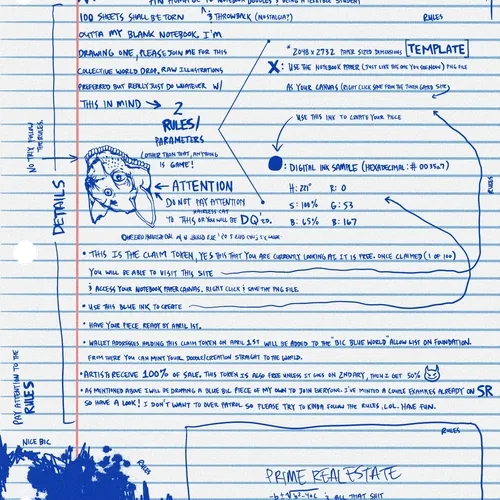 100 SHEETS SHALL BE TORN
& THROWBACK (NOSTALGIA?)
RULES
OUTTA MY BLANK NOTEBOOK. I'M
DRAWING ONE, PLEASE JOIN ME FOR THIS
COLLECTIVE WORLD DROP. RAW ILLUSTRATIONS
PREFERRED BUT REALLY JUST DO WHATEVER W/
THIS IN MIND → 2
RULES/
PARAMETERS
(OTHER THAN THAT, ANYTHING
IS GAME!
* 2048 x 2732 PAPER SIZED DIMENSIONS [TEMPLATE]
X: USE THE NOTEBOOK PAPER (JUST LIKE THE ONE YOU SEE NOW) PNG FILE
AS YOUR CANVAS (RIGHT CLICK SAVE FROM THE TOKEN GATED SITE)
USE THIS INK TO CREATE YOUR PIECE
: DIGITAL INK SAMPLE (HEXADECIMAL: # 0035a7)
H: 221° R: 0
S: 100% G: 53
B: 65% B: 167
RULES
NO TRY FOLLOW
THE RULES.
DETAILS
← ATTENTION
DO NOT PAY ATTENTION
HAIRLESS CAT
TO THIS OR YOU WILL BE DQ'ED.
• THIS IS THE CLAIM TOKEN, YES THIS THAT YOU ARE CURRENTLY LOOKING AT. IT IS FREE. ONCE CLAIMED (1 OF 100)
YOU WILL BE ABLE TO VISIT THIS SITE
& ACCESS YOUR NOTEBOOK PAPER CANVAS. RIGHT CLICK & SAVE THE PNG FILE
• USE THIS BLUE INK TO CREATE
• HAVE YOUR PIECE READY BY APRIL 1ST.
• WALLET ADDRESSES HOLDING THIS CLAIM TOKEN ON APRIL 1ST WILL BE ADDED TO THE "BIG BLUE WORLD" ALLOW LIST ON FOUNDATION.
FROM THERE YOU CAN MINT YOUR DOODLE/CREATION STRAIGHT TO THE WORLD.
• ARTISTS RECEIVE 100% OF SALE. THIS TOKEN IS ALSO FREE UNLESS IT GOES ON 2NDARY, THEN I GET 50%
• AS MENTIONED ABOVE I WILL BE DRAWING A BLUE BIC PIECE OF MY OWN TO JOIN EVERYONE. I'VE MINTED A COUPLE EXAMPLES ALREADY ON SR
SO HAVE A LOOK! I DON'T WANT TO OVER PATROL SO PLEASE TRY TO KINDA FOLLOW THE RULES. LOL. HAVE FUN.
PAY ATTENTION TO THE
RULES
NICE BIC
RULES
RULES
PRIME REAL ESTATE
-b ± √b²-4ac & ALL THAT SHIT